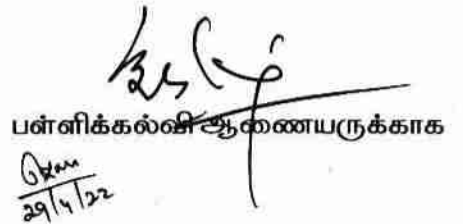 பள்ளிக்கல்வி ஆணையருக்காக
29/4/22